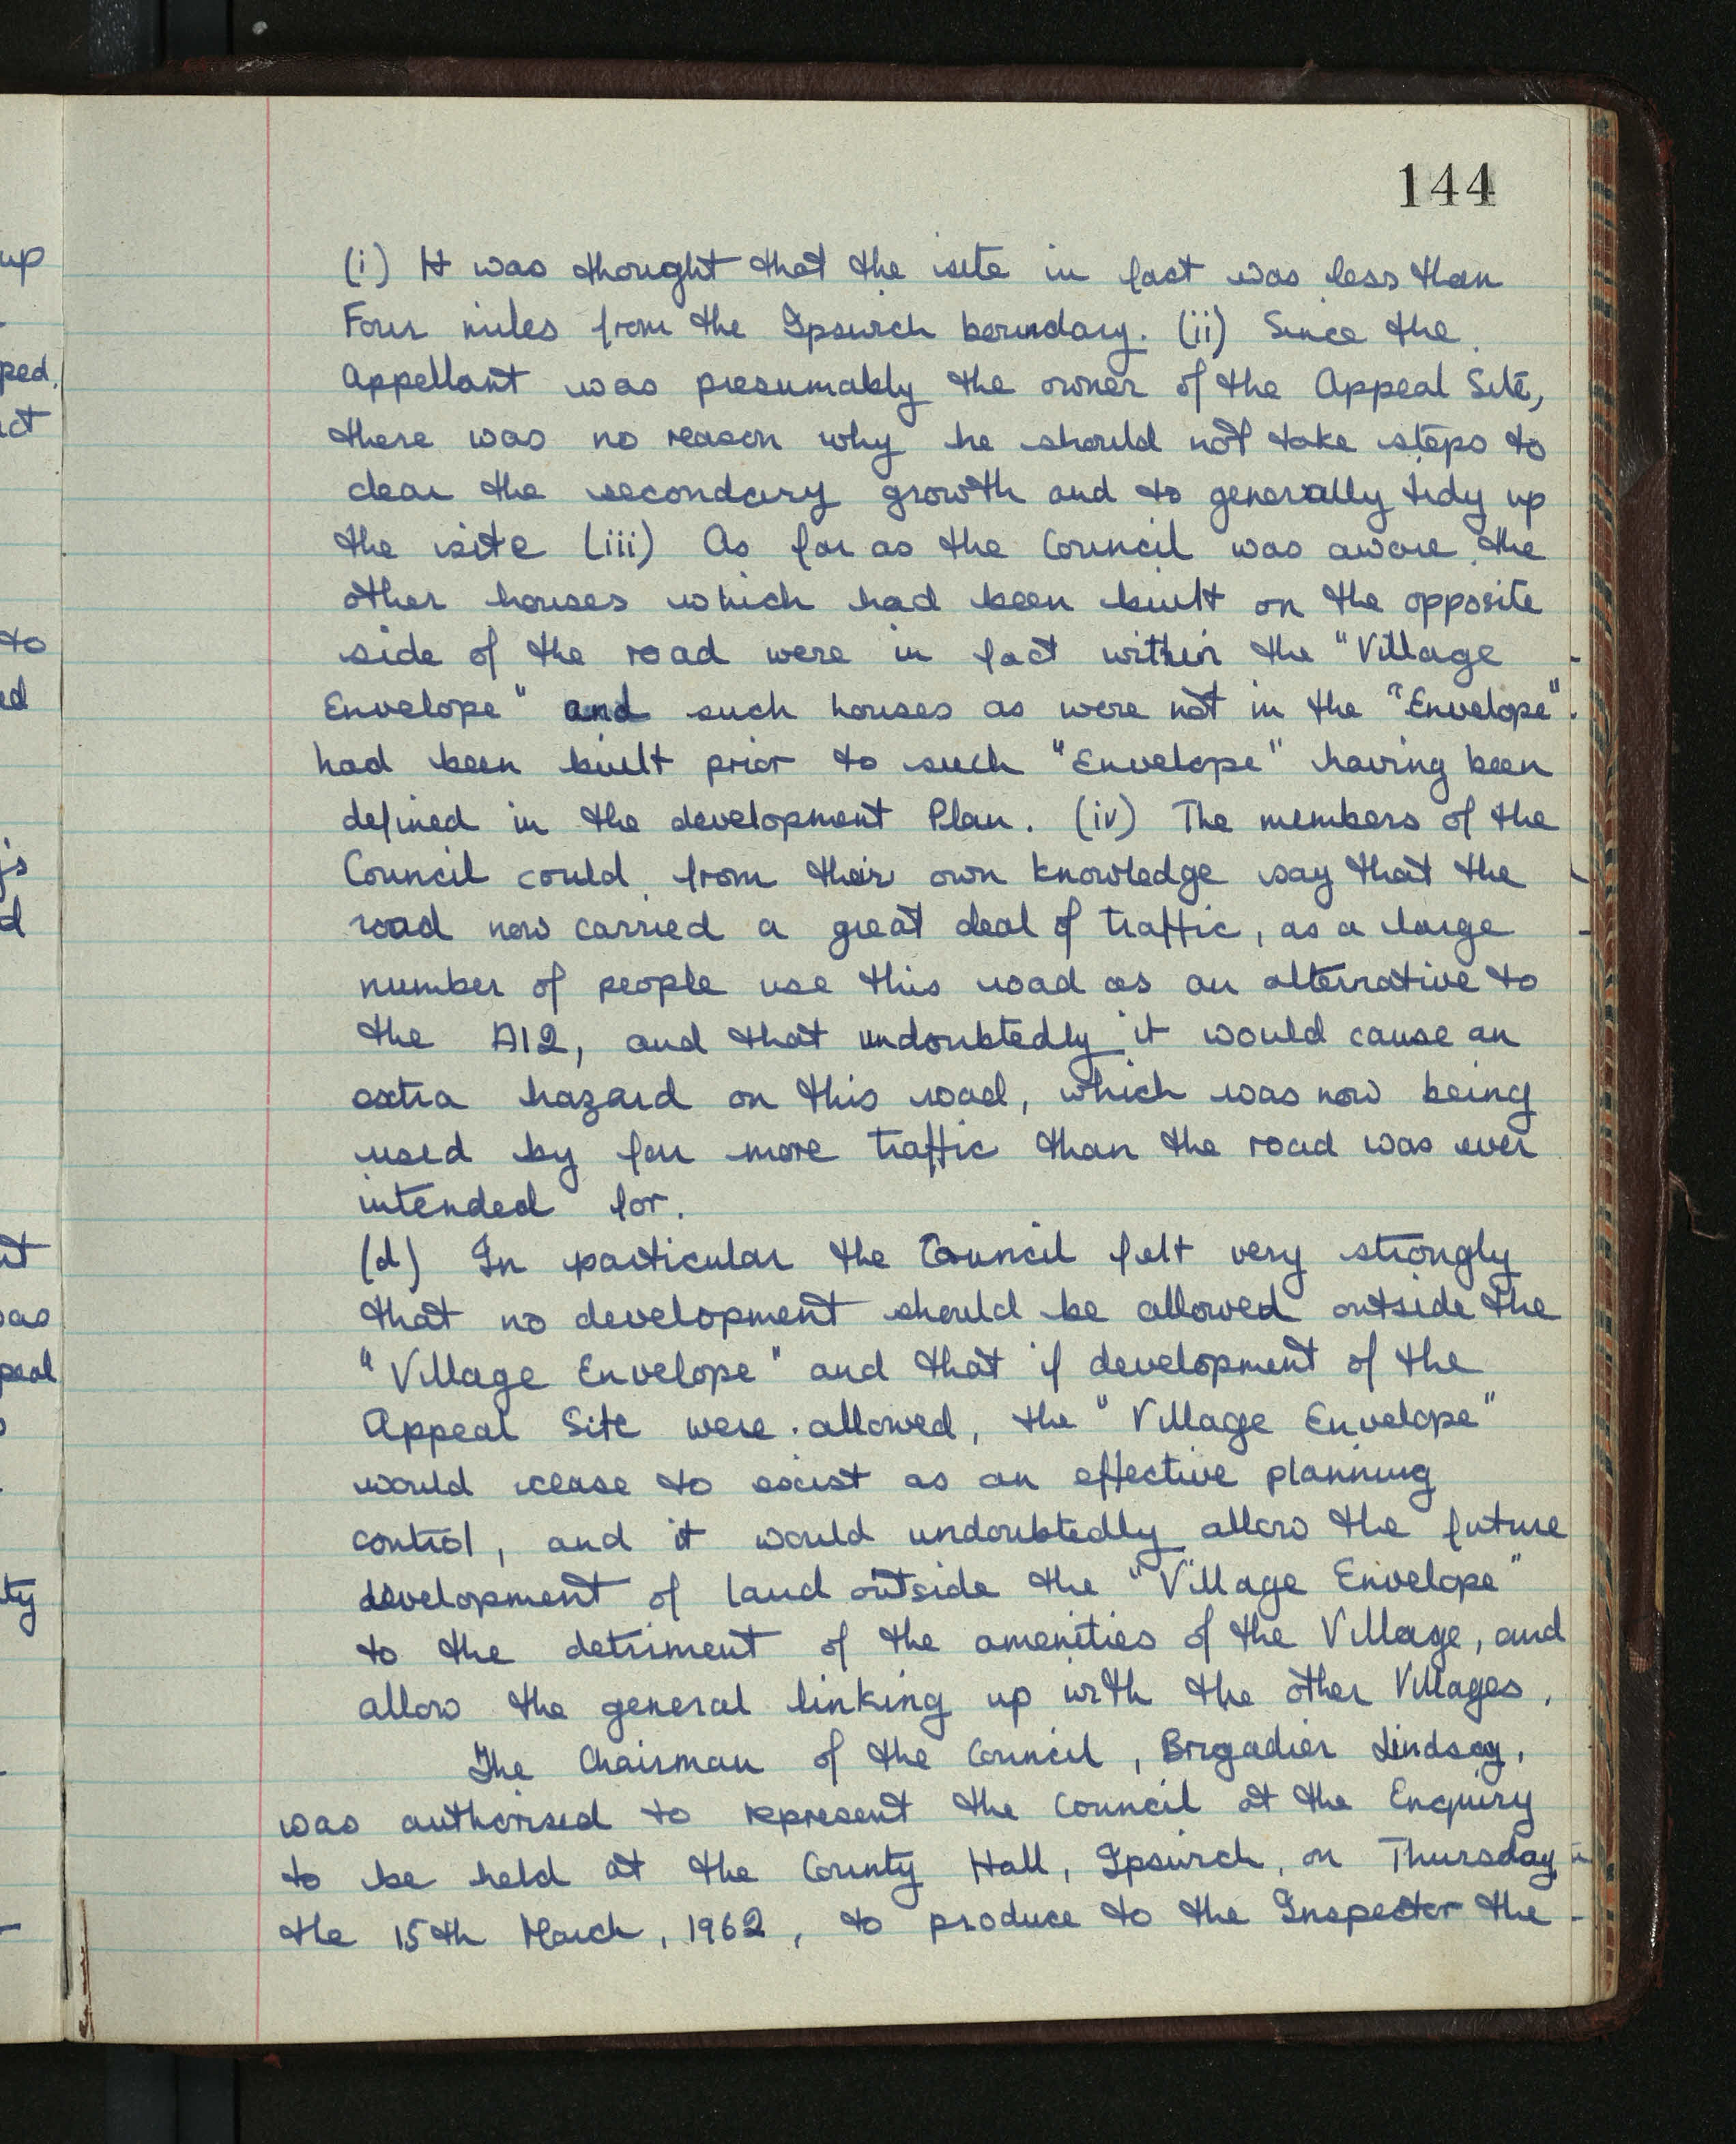 144
(i) It was thought that the site in fact was less than
Four miles from the Ipswich boundary. (ii) Since the
Appellant was presumably the owner of the Appeal Site,
there was no reason why he should not take steps to
clear the secondary growth and to generally tidy up
the site (iii) As far as the Council was aware the
other houses which had been built on the opposite
side of the road were in fact within the "Village
Envelope" and such houses as were not in the "Envelope"
had been built prior to such "Envelope" having been
defined in the development Plan. (iv) The members of the
Council could from their own knowledge say that the
road now carried a great deal of traffic, as a large
number of people use this road as an alternative to
the A12, and that undoubtedly it would cause an
extra hazard on this road, which was now being
used by far more traffic than the road was ever
intended for.
(d) In particular the Council felt very strongly
that no development should be allowed outside the
"Village Envelope" and that if development of the
Appeal Site were allowed, the "Village Envelope"
would cease to exist as an effective planning
control, and it would undoubtedly allow the future
development of land outside the "Village Envelope"
to the detriment of the amenities of the Village, and
allow the general linking up with the other Villages.
The Chairman of the Council, Brigadier Lindsay,
was authorised to represent the Council at the Enquiry
to be held at the County Hall, Ipswich, on Thursday
the 15th March, 1962, to produce to the Inspector the
up
ped.
to
ed
d
peal
ty